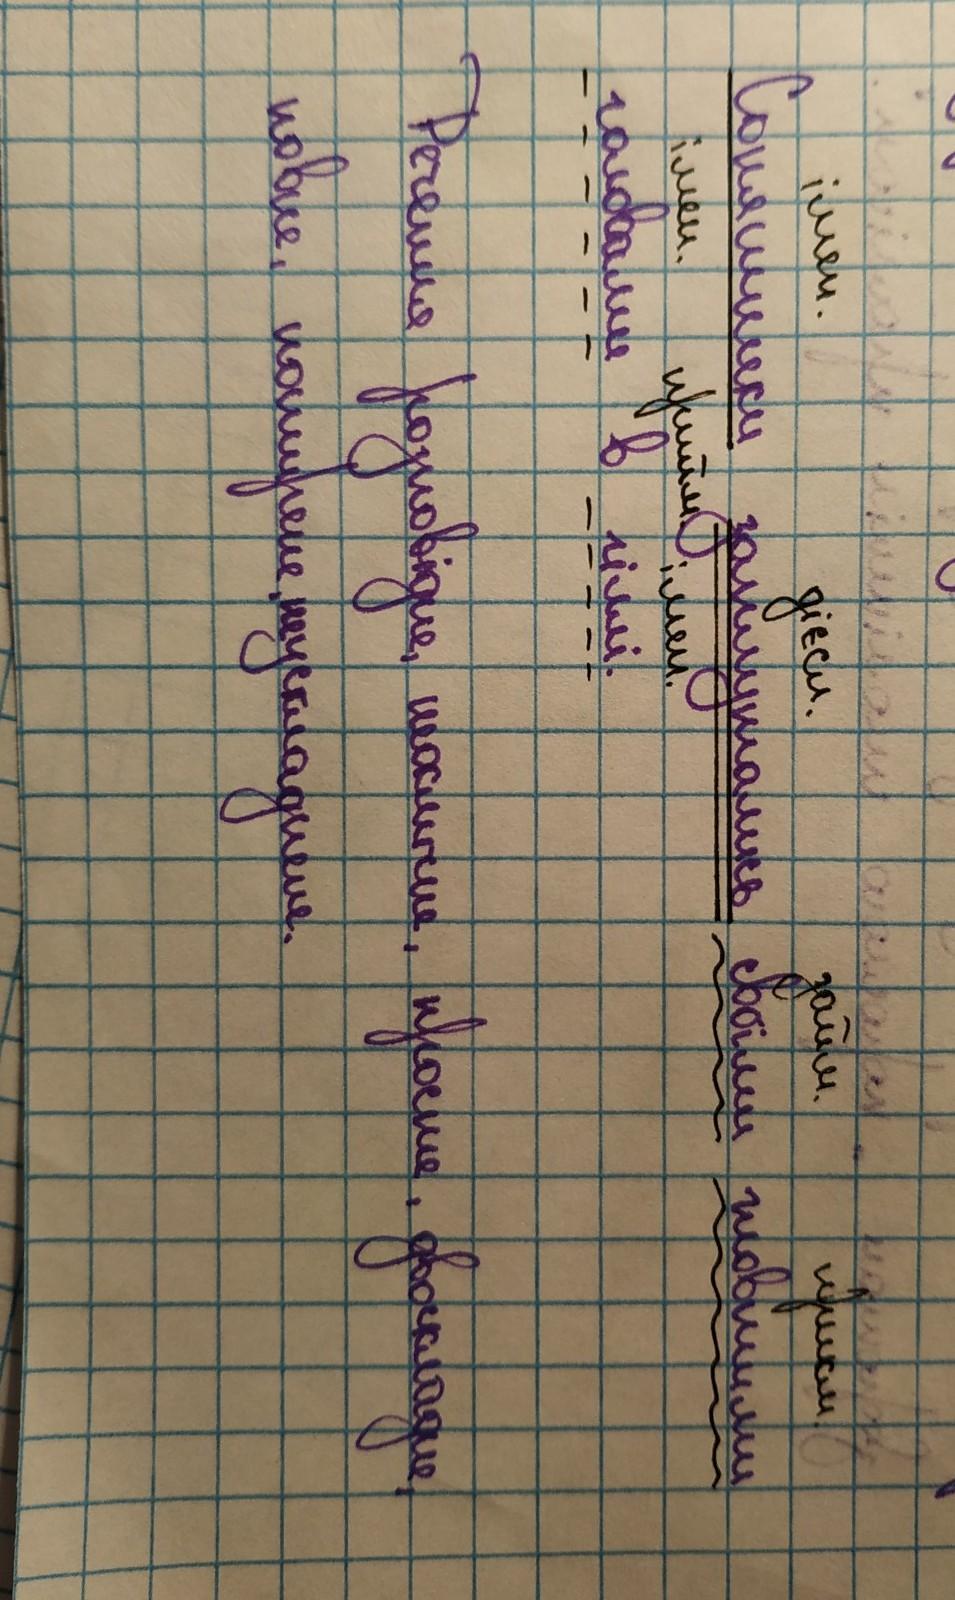 імен. дієсл. займ. прикм.
Соняшники заплутались своїми жовтими
імен. прийм. імен.
головами в гіллі.
Речення розповідне, неокличне, просте, двоскладне,
повне, поширене, неускладнене.